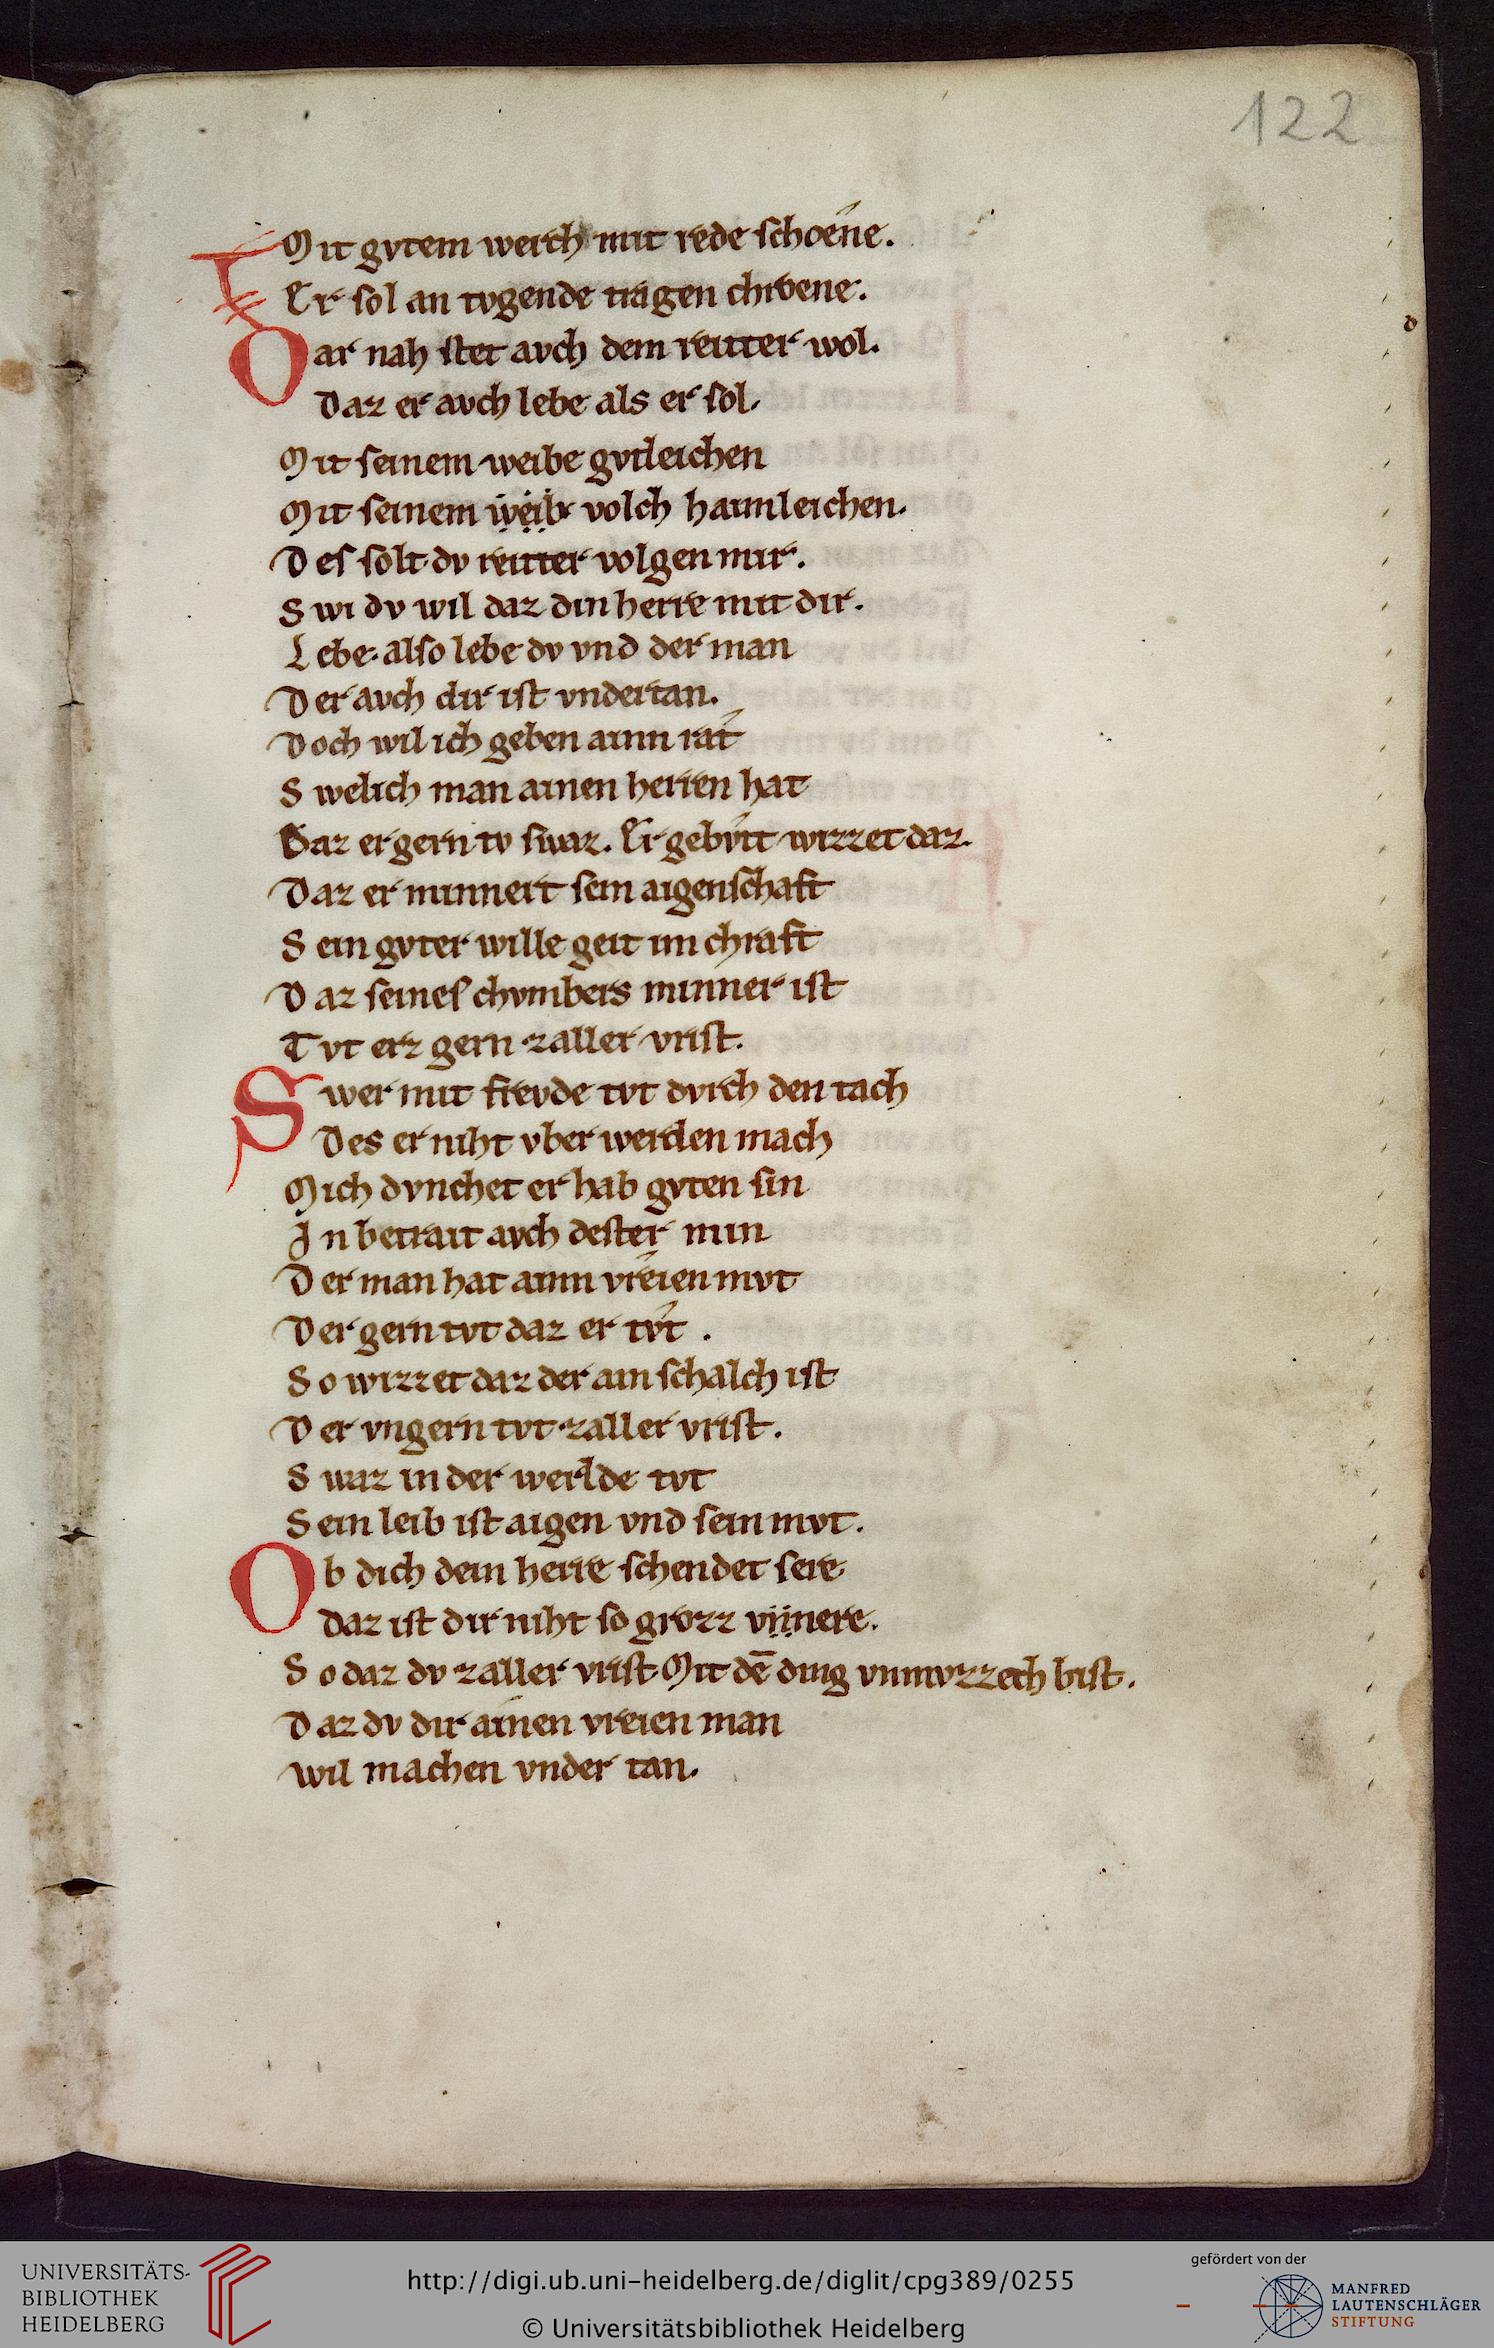 122
Mit gvtem werch mit rede schoene.
Er sol an tvgende tragen chroene.
Dar nah stet avch dem reitter wol.
Daz er avch lebe als er sol.
Mit seinem weibe gvtleichen
Mit seinem weib volch haimleichen.
Des solt dv reitter volgen mir.
Swi dv wil daz din herre mit dir.
Lebe. also lebe dv vnd der man
Der avch dir ist vndertan.
Doch wil ich geben ainn rat
Swelich man ainen herren hat
Daz er gern tv swaz. Er gebvtt wizzet daz.
Daz er minnert sein aigenschaft
Sein gvter wille geit im chraft
Daz seines chvmbers minner ist
Tvt erz gern zaller vrist.
Swer mit frevde tvt dvrch den tach
Des er niht vber werden mach
Mich dvnchet er hab gvten sin
In betrait avch dester min
Der man hat ainn vreien mvt
Der gern tvt daz er tvt.
So wizzet daz der ain schalch ist
Der vngern tvt zaller vrist.
Swaz in der werlde tvt
Sein leib ist aigen vnd sein mvt.
Ob dich dein herre schendet sere
daz ist dir niht so grozz vnere.
So daz dv zaller vrist Mit dē ding vnmvzzech bist.
Daz dv dir ainen vreien man
wil machen vnder tan.
UNIVERSITÄTS-
BIBLIOTHEK
HEIDELBERG
http://digi.ub.uni-heidelberg.de/diglit/cpg389/0255
© Universitätsbibliothek Heidelberg
gefördert von der
MANFRED
LAUTENSCHLÄGER
STIFTUNG